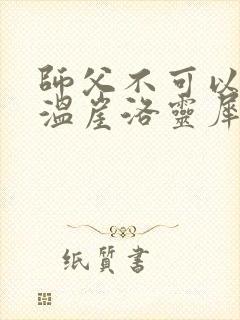 師父不可以
溫崖洛靈犀
纸質書